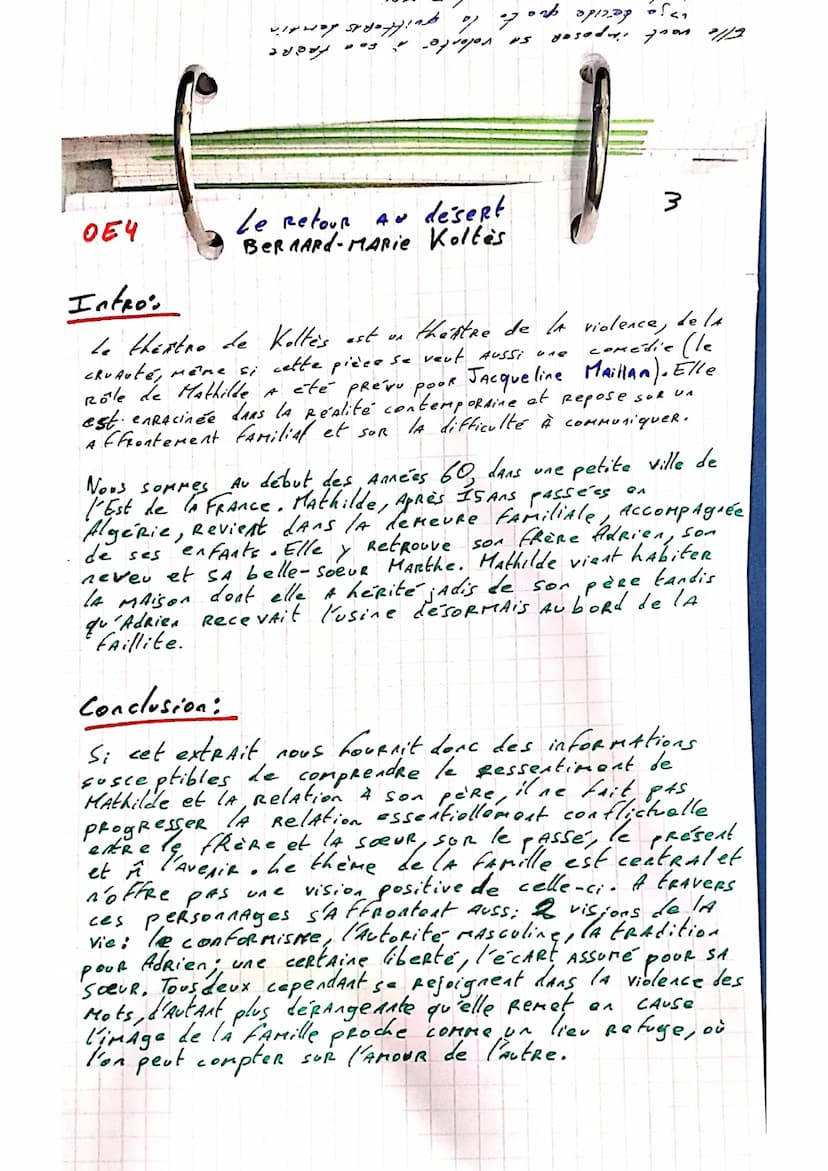 Elle veut imposer sa volonté à son frère
déjà décidé que tu la quitteras demain
OE4
Le Retour au désert
3
BERNARD-MARIE Koltès
Intro:
Le théâtre de Koltès est un théâtre de la violence, de la
cruauté, même si cette pièce se veut aussi une comédie (le
rôle de Mathilde a été prévu pour Jacqueline Maillan). Elle
est enracinée dans la réalité contemporaine et repose sur un
affrontement familial et sur la difficulté à communiquer.
Nous sommes au début des années 60, dans une petite ville de
l'Est de la France. Mathilde, après 15 ans passées en
Algérie, revient dans la demeure familiale, accompagnée
de ses enfants. Elle y retrouve son frère Adrien, son
neveu et sa belle-soeur Marthe. Mathilde vient habiter
la maison dont elle a hérité jadis de son père tandis
qu'Adrien recevait l'usine désormais au bord de la
faillite.
Conclusion:
Si cet extrait nous fournit donc des informations
susceptibles de comprendre le ressentiment de
Mathilde et la relation à son père, il ne fait pas
progresser la relation essentiellement conflictuelle
entre le frère et la sœur, sur le passé, le présent
et m̂ l'avenir. Le thème de la famille est central et
n'offre pas une vision positive de celle-ci. A travers
ces personnages s'affrontent aussi 2 visions de la
vie: le conformisme, l'autorité masculine, la tradition
pour Adrien; une certaine liberté, l'écart assumé pour sa
sœur. Tous deux cependant se rejoignent dans la violence des
mots, d'autant plus dérangeante qu'elle remet en cause
l'image de la famille proche comme un lieu refuge, où
l'on peut compter sur l'amour de l'autre.